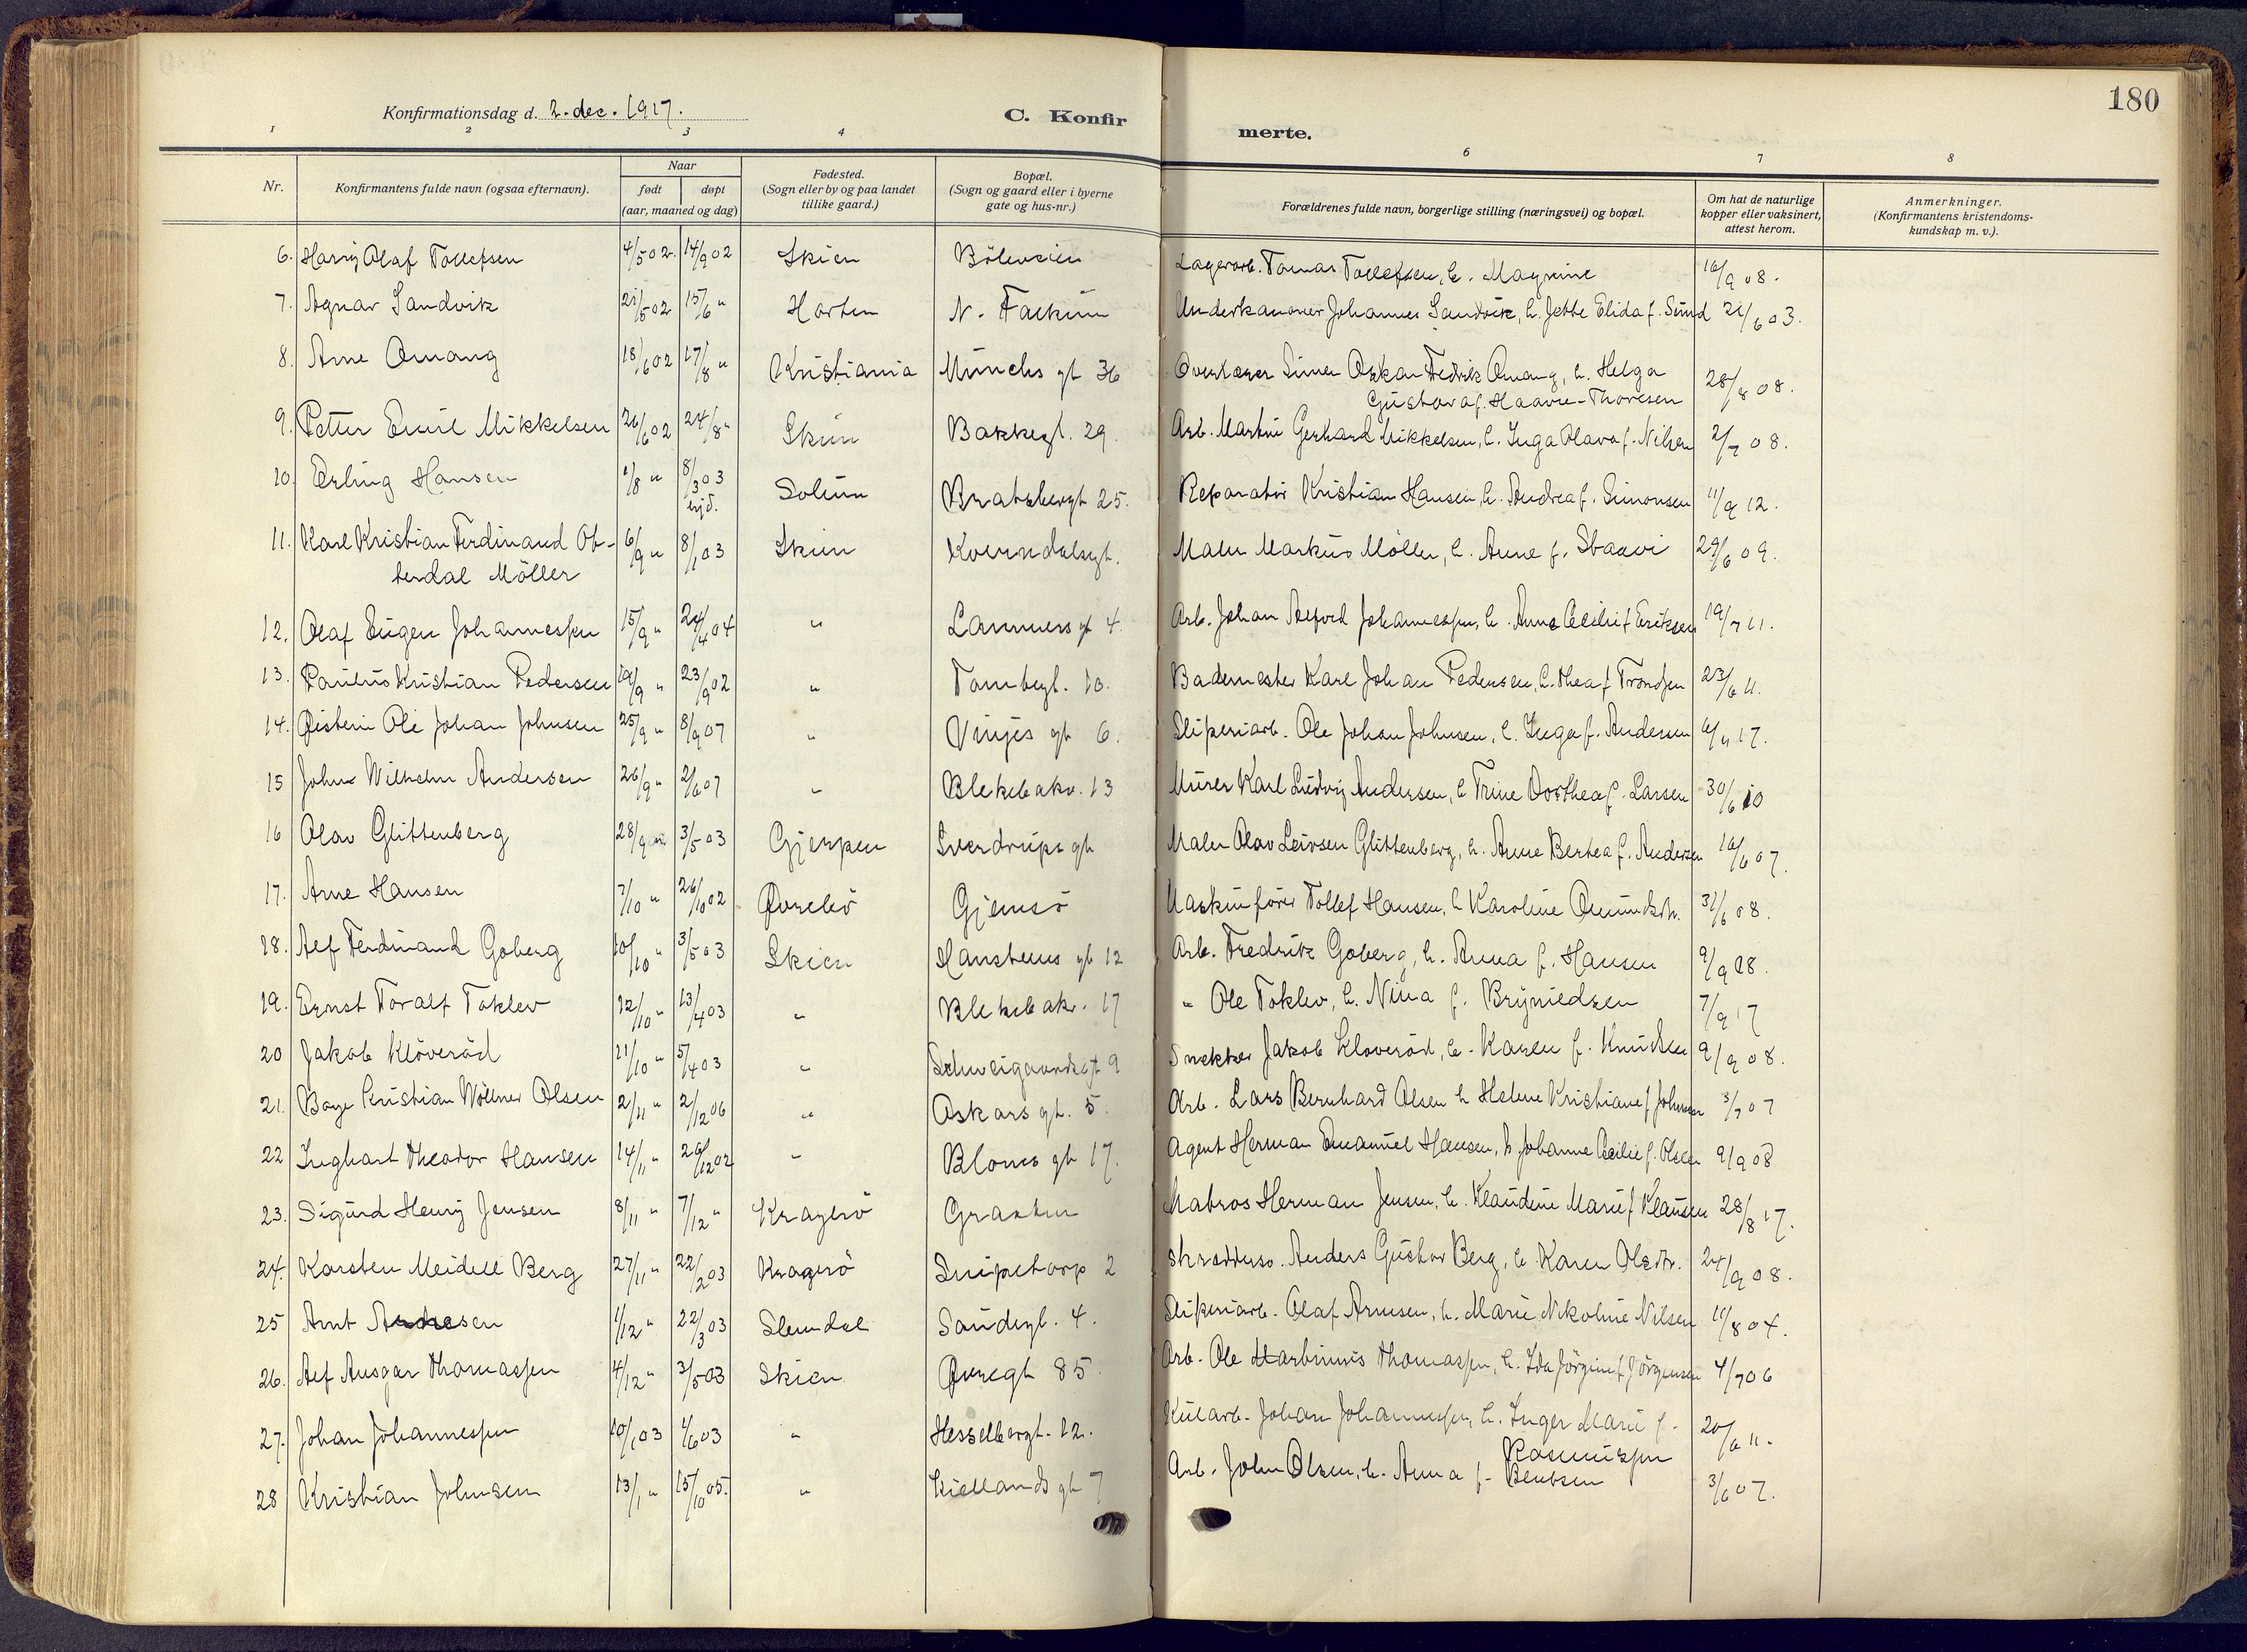 180
Konfirmationsdag d. 2. dec. 1917.
C. Konfir
merte.
1 2 3 4
6 7 8
Nr.
Konfirmantens fulde navn (ogsaa efternavn).
Naar
født døpt
(aar, maaned og dag)
Fødested.
(Sogn eller by og paa landet
tillike gaard.)
Bopæl.
(Sogn og gaard eller i byerne
gate og hus-nr.)
Forældrenes fulde navn, borgerlige stilling (næringsvei) og bopæl.
Om hat de naturlige
kopper eller vaksinert,
attest herom.
Anmerkninger.
(Konfirmantens kristendoms-
kundskap m. v.).
6. Harry Olaf Tollefsen 4/5 02 14/9 02 Skien Böleveien Lagerarb. Tomas Tollefsen, h. Magnine 16/9 08.
7. Agnar Sandvik 21/5 02 15/6 " Horten N. Falkum Underkanoner Johannes Sandvik, h. Jette Elida f. Sund 21/6 03.
8. Arne Omang 18/6 02 17/8 " Kristiania Münchs gt 36 Overlærer Simen Oskar Fredrik Omang, h. Helga
Gustava f. Haavie-Thoresen 28/8 08.
9. Petter Emil Mikkelsen 26/6 02 24/8 " Skien Bakkegt. 29. Arb. Martin Gerhard Mikkelsen, h. Inga Olava f. Nilsen 2/7 08.
10. Erling Hansen 1/8 " 8/3 03 Solum Bratsbergt 25. Reparatör Kristian Hansen, h. Andrea f. Simonsen 11/9 12.
hjd.
11. Karl Kristian Ferdinand Ot- 6/9 " 8/1 03 Skien Kverndalsgt. Maler Markus Möller, h. Anne f. Staavi 29/6 09.
terdal Möller
12. Olaf Eugen Johannessen 15/9 " 24/4 04 " Lammers gt 4. Arb. Johan Alfred Johannessen, h. Anne Cecilie f Eriksen 19/7 11.
13. Paulus Kristian Pedersen 19/9 " 23/9 02 " Tombegt. 10. Bademester Karl Johan Pedersen, h. Thea f Trondsen 23/6 11.
14. Öistein Ole Johan Johnsen 25/9 " 8/9 07 " Vinjes gt 6. Sliperiarb. Ole Johan Johnsen, h. Inga f. Andersen 6/11 17.
15 John Wilhelm Andersen 26/9 " 2/6 07 " Blekebakv. 13 Murer Karl Ludvig Andersen, h Trine Dorthea f. Larsen 30/6 10
16 Olav Glittenberg 28/9 " 3/5 03 Gjerpen Sverdrups gt Maler Olav Leivsen Glittenberg, h. Anne Bertea f. Andersen 16/6 07.
17. Arne Hansen 7/10 " 26/10 02 Övrebö Gjemsö Maskinförer Tollef Hansen, h Karoline Omundsdtr. 31/6 08.
18. Alf Ferdinand Goberg 10/10 " 3/5 03 Skien Hansteens gt 12 Arb. Fredrik Goberg, h. Anna f. Hansen 9/9 08.
19. Ernst Toralf Toklev 12/10 " 13/4 03 " Blekebakv. 17 " Ole Toklev, h. Nina f. Brynildsen 7/9 17
20 Jakob Klöveröd 21/10 " 5/4 03 " Schweigaardsgt 9 Snekker Jakob Kloveröd, h. Karen f. Knudsen 9/9 08.
21. Boye Kristian Wöllner Olsen 2/11 " 2/12 06 " Oskars gt. 5. Arb. Lars Bernhard Olsen h Helene Kristiane f Johnsen 3/7 07
22 Inghart Theodor Hansen 14/11 " 26/12 02 " Bloms gt 17. Agent Herman Emanuel Hansen, h Johanne Cecilie f. Olsen 9/9 08
23. Sigurd Henry Jensen 8/11 " 7/12 " Kragerö Graaten Matros Herman Jensen, h. Klaudine Marie f Klausen 28/8 17.
24. Karsten Meidell Berg 27/11 " 22/2 03 Kragerö Snipetorp 2 Skræddersv. Anders Gustav Berg, h. Karen Olsdtr. 24/9 08.
25 Arnt Arnesen 1/12 " 22/3 03 Slemdal Sandsgt. 4. Sliperiarb. Olaf Arnesen, h. Marie Nikoline Nilsen 11/8 04.
26. Alf Ansgar Thomassen 4/12 " 3/5 03 Skien Övregt 85. Arb. Ole Martinius Thomassen, h. Ida Jörgine f Jörgensen 4/7 06
27. Johan Johannessen 10/1 03 1/6 03 " Hesselbergt. 12. Kularb. Johan Johannessen, h. Inger Marie f.
Rasmussen 20/6 11.
28 Kristian Johnsen 13/1 " 15/10 05. " Kiellands gt 7 Arb. John Olsen, h. Anna f. Bentsen 3/6 07.